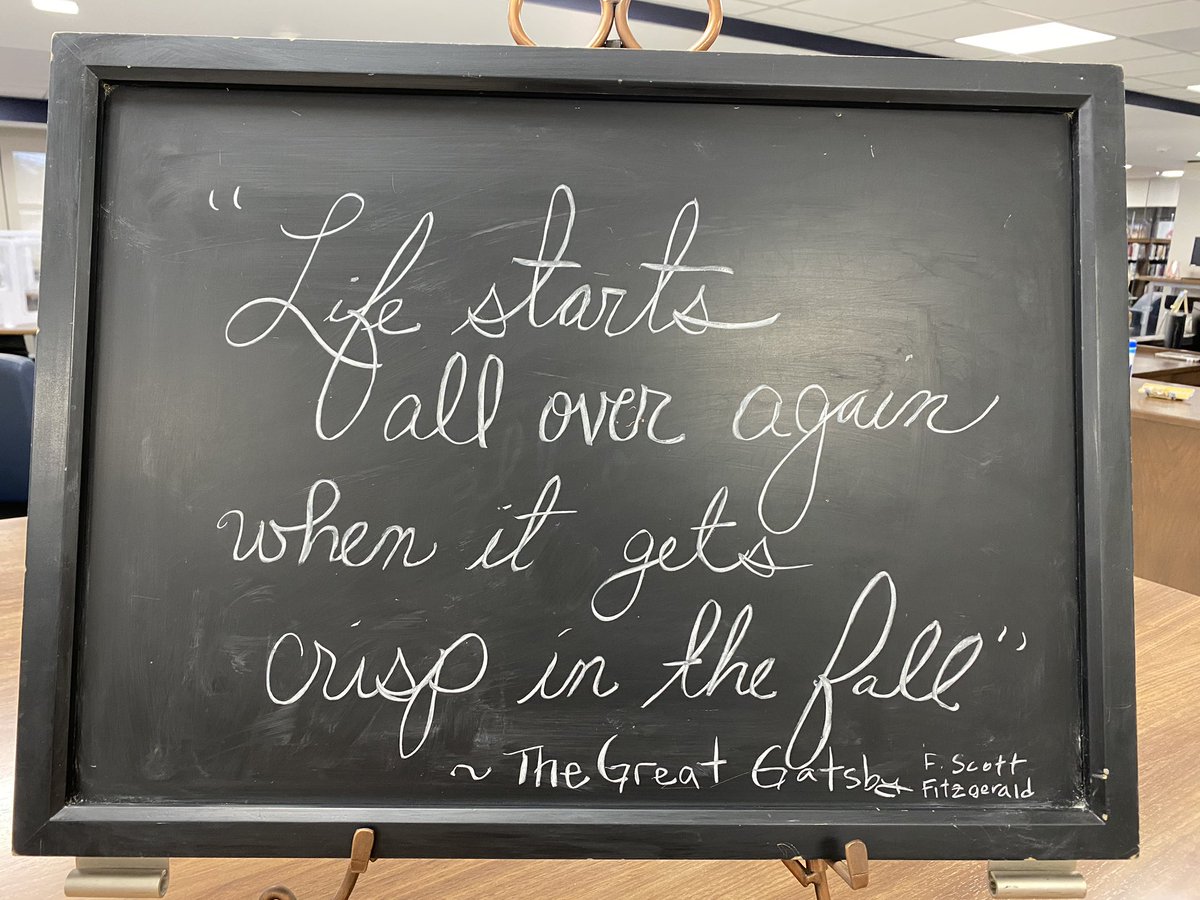 "Life starts
all over again
when it gets
crisp in the fall"
~ The Great Gatsby F. Scott
Fitzgerald